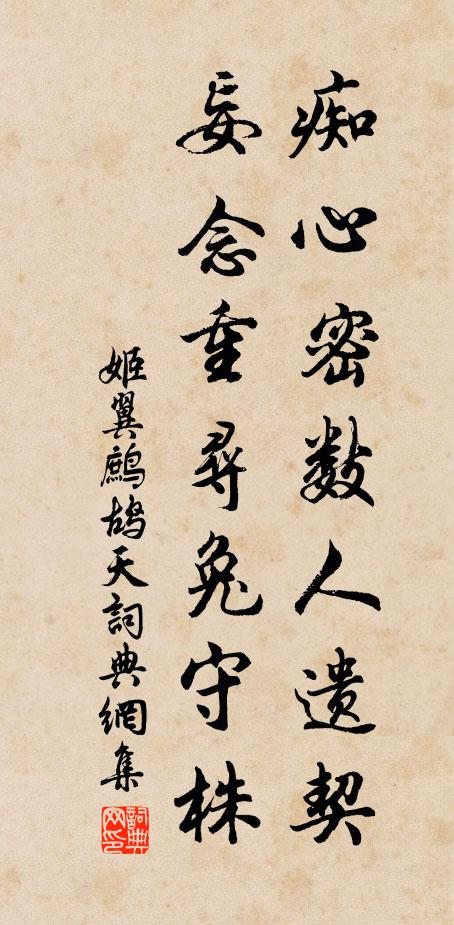 痴心密数人遗契
妄念重寻兔守株
姬翼鹧鸪天詞典網集
詞典网印